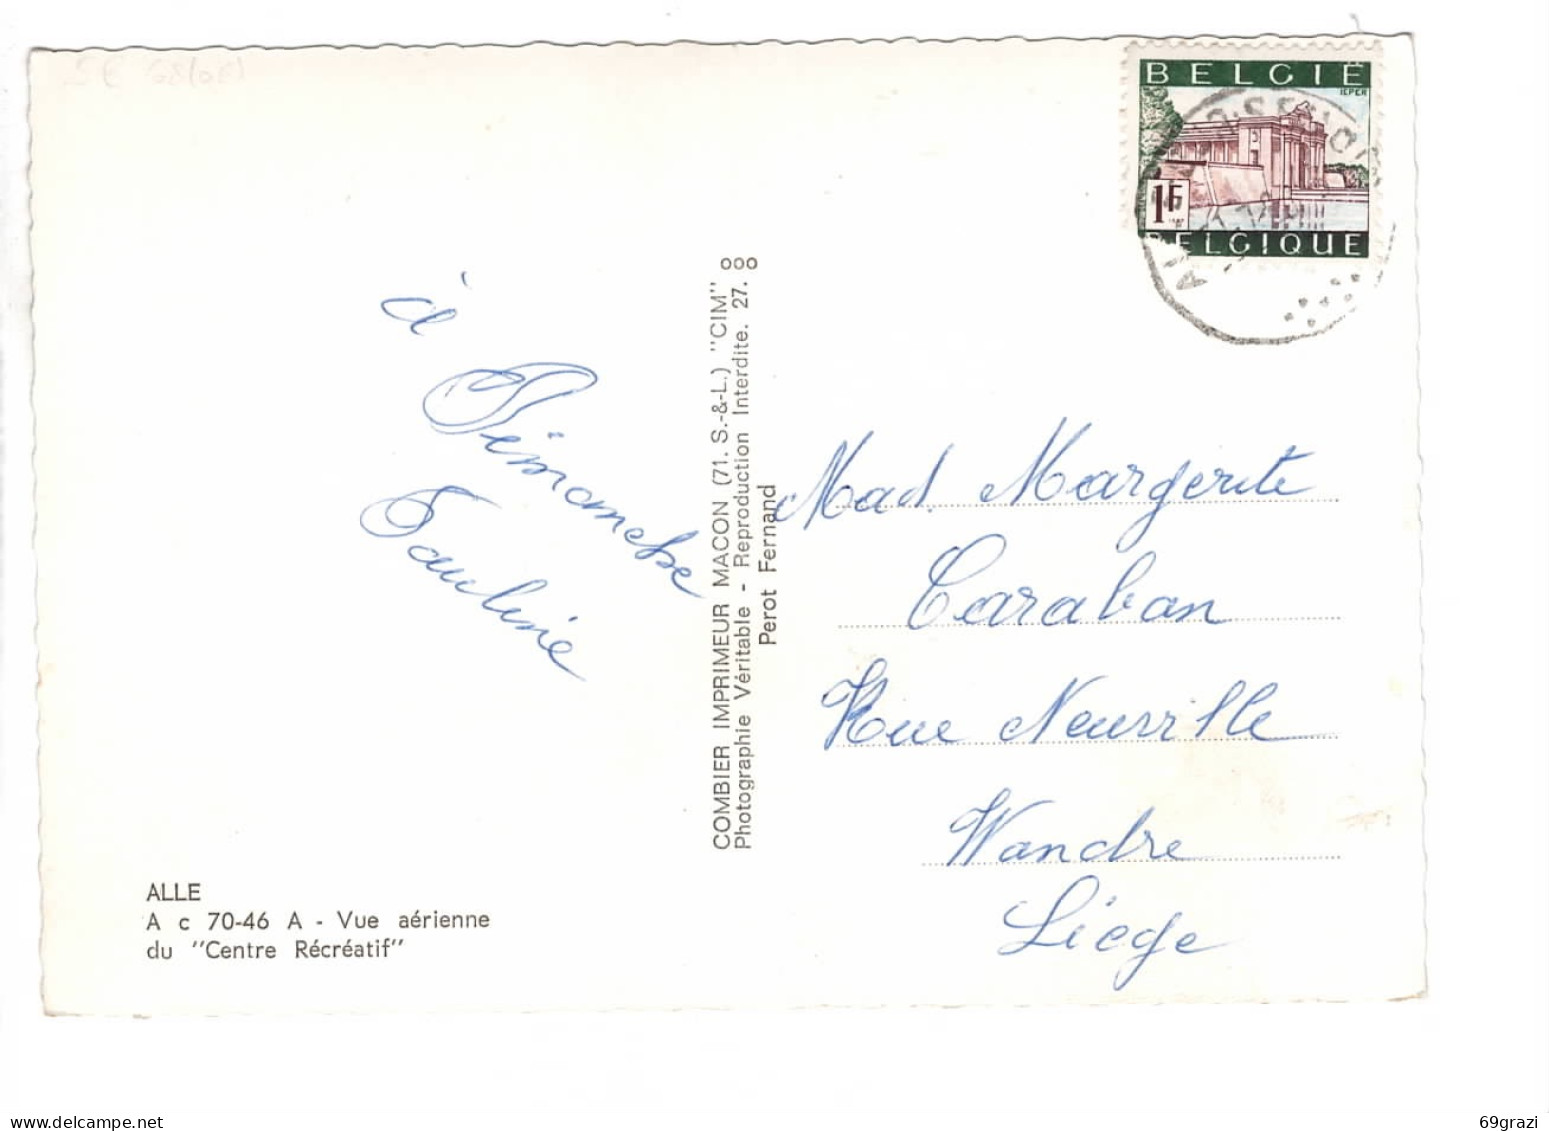 BELGIË
IEPER
1F
BELGIQUE
à
Dimanche
Pauline
COMBIER IMPRIMEUR MACON (71. S.-&-L.) "CIM"
Photographie Véritable - Reproduction Interdite. 27.
Perot Fernand
Mad. Margerite
Caraban
Rue Neuville
Wandre
Liège
ALLE
A c 70-46 A - Vue aérienne
du "Centre Récréatif"
69grazi